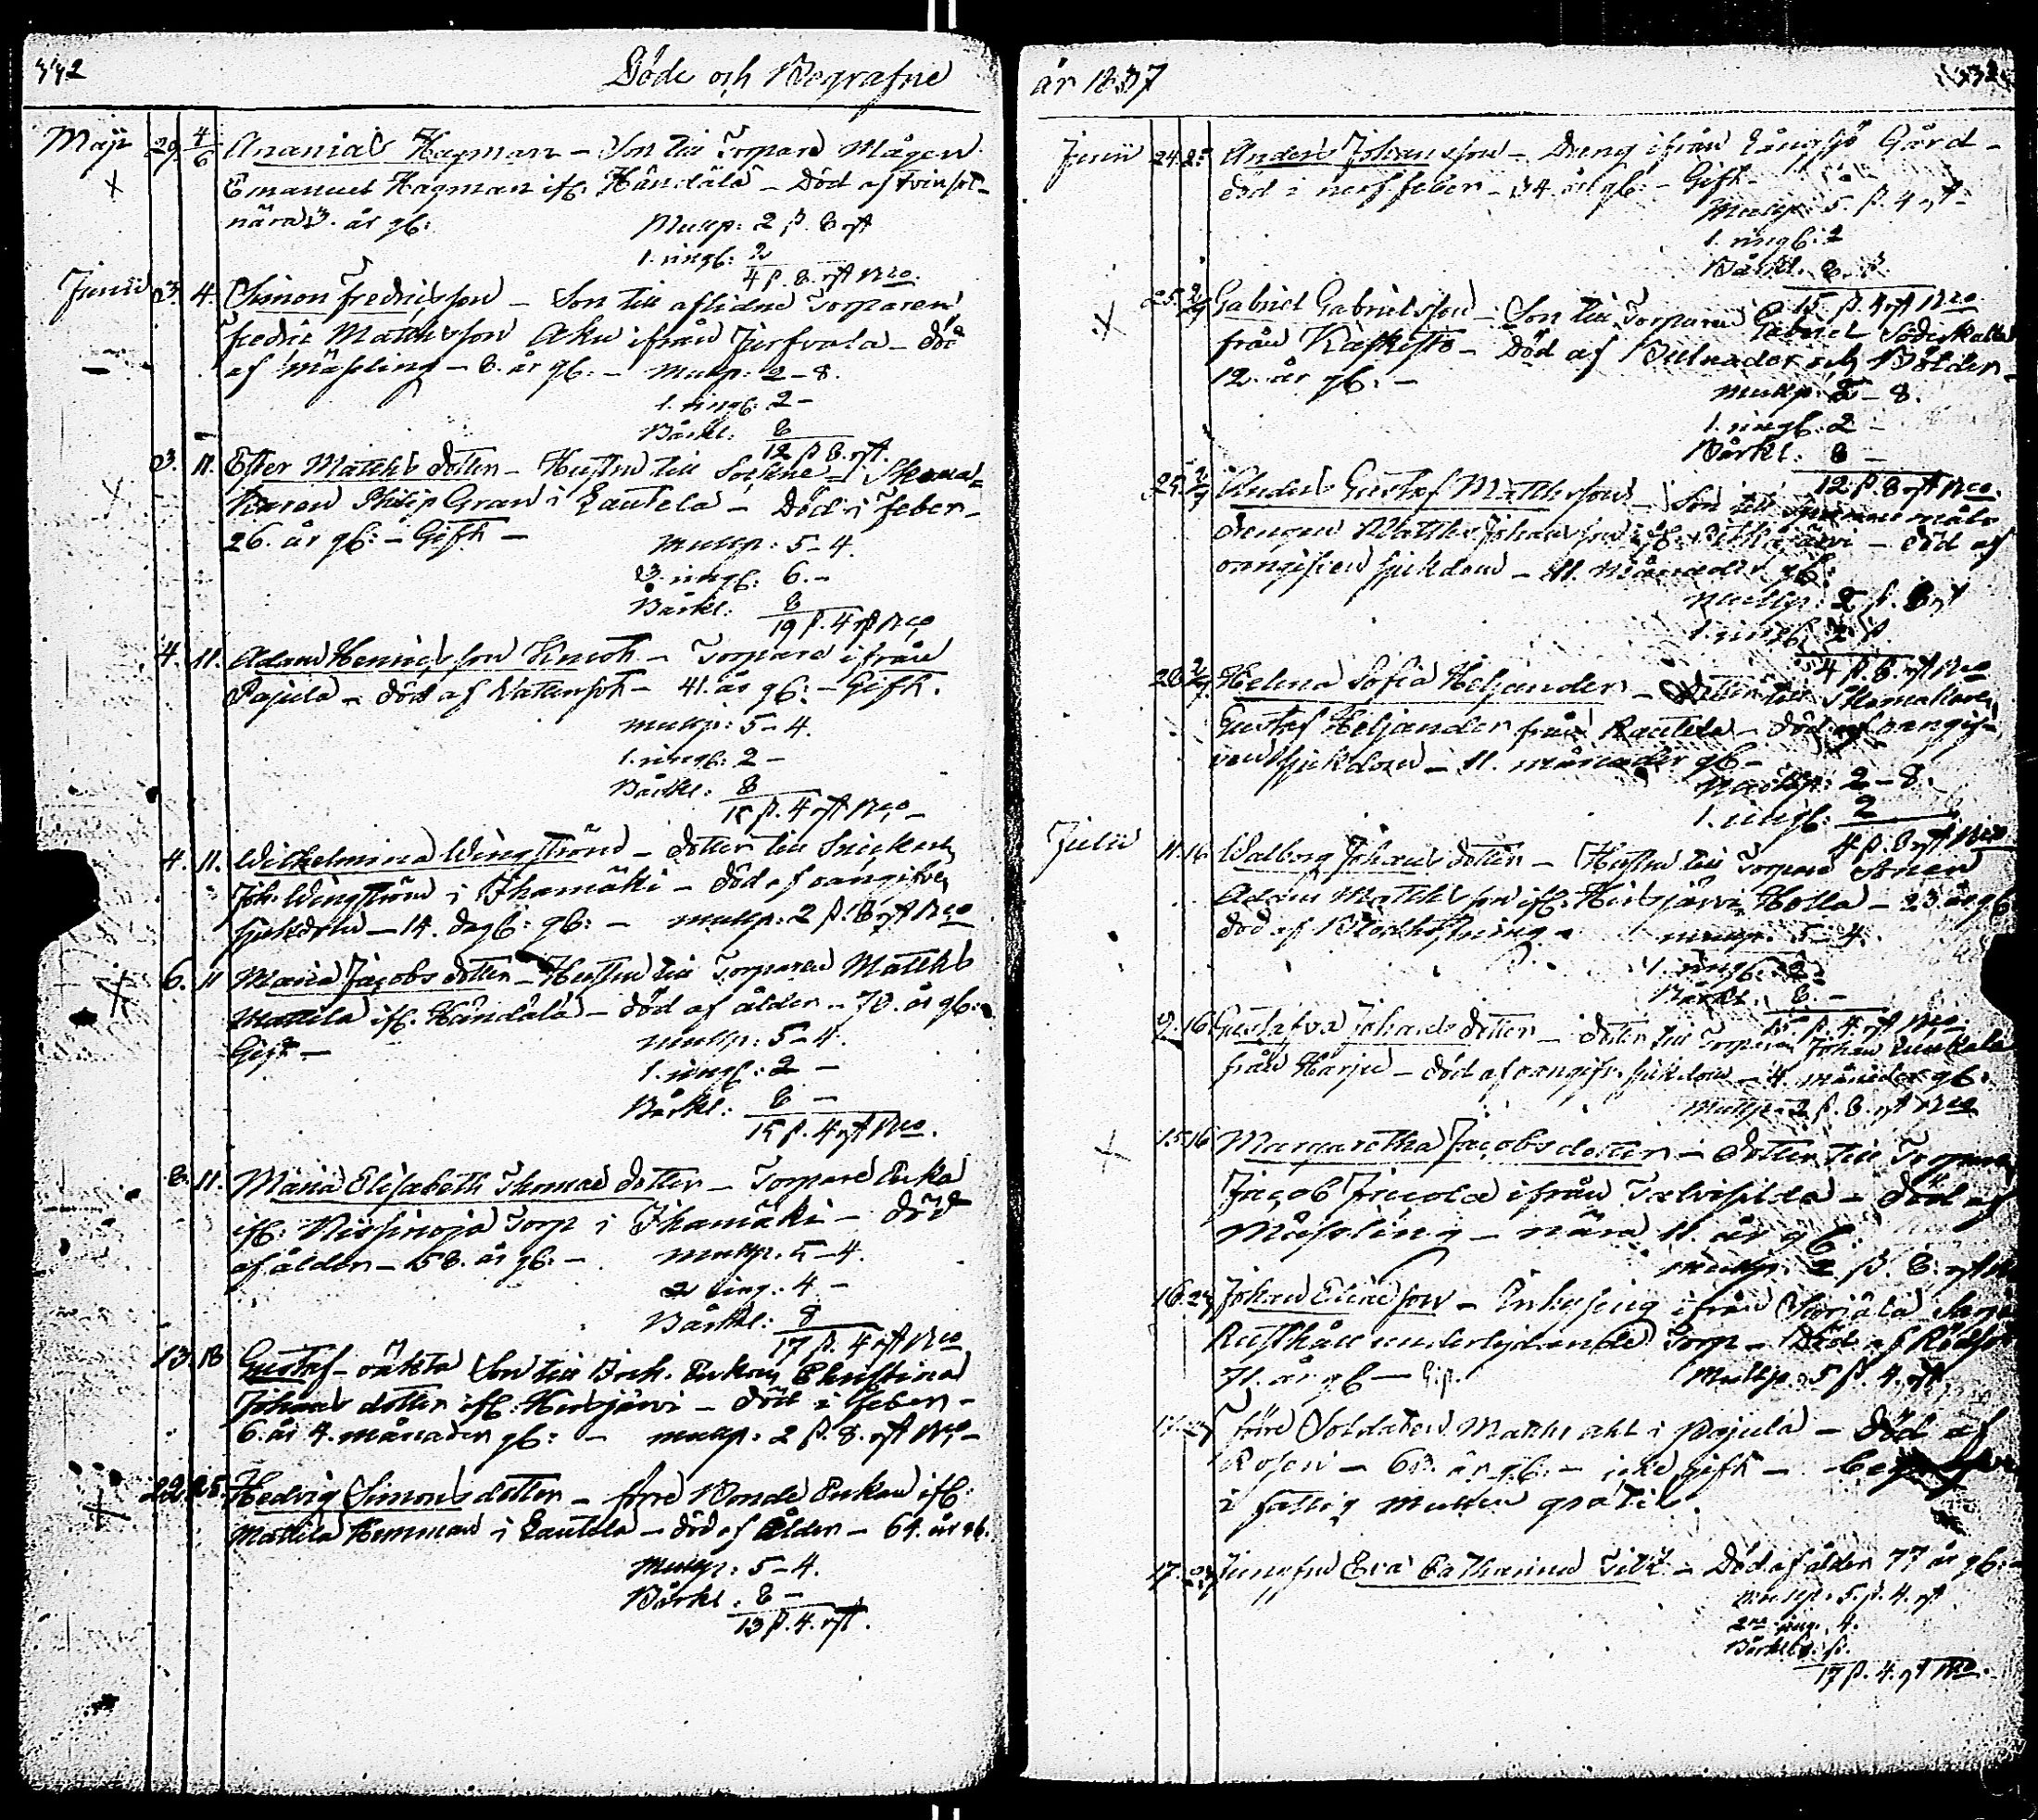 442
Döde och Begrafne
Maji 29. 4/6 Ananias Hagman – Son till Torpare Mågen
Emanuel Hagman ifr: Håndälä – Död af
nära 3. år gl:
Mullp: 2 ß. 8 rst
1. ringl: 2
4 ß. 8. rst Bco.
Junii 3. 4. Simon Fredricsson – Son till aflidne Torparen
Fredric Matthsson Aku ifrån Turfvala – död
af Mässling – 8. år gl: – Mullp: 2–8.
1. ringl: 2 –
Bårkl: 8
12 ß 8. rst.
3. 11. Ester Matths dotter – Hustru till Sockne–Skoma=
karen Philip Gran i Lautela – Död i Feber –
26. år gl: – Gift –
Mullp: 5–4.
3. ringl: 6. –
Bårkl: 8
19 ß. 4 rst Bco
4. 11. Adam Henricsson – Torpare ifrån
Pajula – död af Vattusot – 41. år gl: – Gift.
Mullp: 5–4.
1. ringl: 2 –
Bårkl: 8
15 ß. 4 rst Bco –
4. 11. Wilhelmina Wingström – dotter till Snickar
Joh. Wingström i Ihamäki – död af oangifven
sjukdom – 14. dag: gl: – Mullp: 2 ß. 8 rst Bco
6. 11 Maria Jacobs dotter – Hustru till Torparen Matths
Mattila ifr. Håndälä – död af ålder – 70. år gl:
Gift –
Mullp: 5–4.
1. ringl: 2 –
Bårkl: 8 –
15 ß. 4 rst Bco.
8. 11. Maria Elisabeth Thomas dotter – Torpare Enka
ifr: Torp i Ihamäki – död
af ålder – 58. år gl: – Mullp: 5–4.
2 ring: 4 –
Bårkl: 8
17 ß. 4 rst Bco
13. 18 Gustaf – oäkta Son till Enkan Christina
Johans dotter ifr: Hirsjärvi – död i Feber –
6. år 4. månader gl: – Mullp: 2 ß. 8. rst Bco –
22. 25. Hedvig Simons dotter – förre Bonde Enkan ifr:
Mattila Hemman i Lautela – död af ålder – 64. år gl.
Mullp: 5–4.
Bårkl: 8 –
13 ß. 4. rst.
år 1837
Junii 24. 25 Anders Johansson – Dreng ifrån Långsjö Gård –
död i nerf feber – 34. år gl: – Gift –
Mullp: 5. ß. 4 rst –
1. ringl: 2
Bårkl. 8. ß
15. ß. 4 rst Bco
25. 2/7 Gabriel Gabrielsson – Son till Torparen Gabriel
från Kaskisto – Död af Bulnader och Bölder –
12. år gl: –
Mullp: 2–8.
1. ringl: 2 –
Bårkl: 8 –
12 ß. 8 rst Bco.
25. 2/7 Anders Gustaf Matthsson – Son till
Drengen Matths Johansson ifr: – död af
oangifven sjukdom – 11. Månader gl:
Mullp: 2 ß. 8 rst
1. ringl: 2 ß
4 ß. 8. rst Bco
28. 2/7 Helena Sofia Heljander – Dotter till Skomakaren
Gustaf Heljander från Rautela – död af oangif=
ven sjukdom – 11. månader gl –
Mullp: 2–8.
1. ringl: 2
4 ß. 8 rst Bco
Julii 11. 16 Walborg Johans dotter – Hustru till Torpare Sonen
Adam Matthsson ifr: Hirsjärvi Holla – 23 år gl
död af Blodhostning –
Mullp. 5–4.
1. ringl: 2
Bårkl. 8. –
15 ß. 4. rst Bco.
9. 16 Gustafva Johans dotter – dotter till Torparen Johan
från Harju – död af oangifv. sjukdom – 4. månader gl:
Mullp: 2 ß. 8. rst Bco
15 16 Margaretha Jacobs dotter – dotter till Torparen
Jacob Jacola ifrån – död af
Mässling – nära 11. år gl:
Mullp. 2 ß. 8. rst
16. 23 Johan Eliasson – Inhysing ifrån
Rusthåll underlydande Torp – Död af
71. år gl – Gift. Mullp. 5 ß. 4. rst
17. 23 förre Soldaten Matths Ahl i Pajula – Död af
Rosen – 68. år gl: – icke gift –
i fattig mullen gratis.
17. 23 Jungfru Eva Catharina – Död af ålder 77 år gl: –
Mullp. 5. ß. 4. rst
2ne ring. 4.
Bårkl 8. ß.
17 ß. 4. rst Bco.